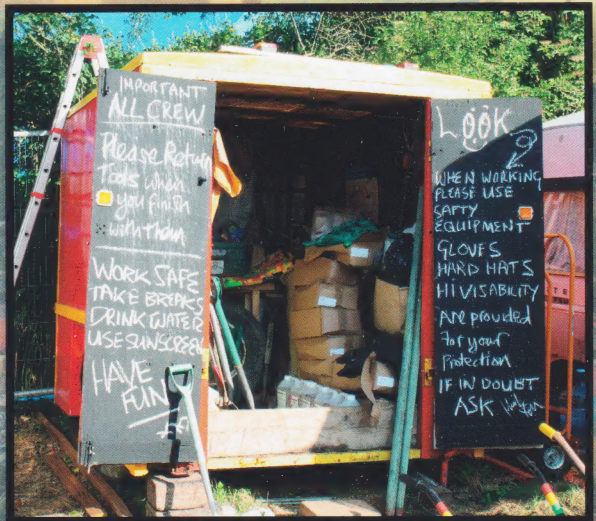 IMPORTANT
ALL CREW
Please Return
Tools when
you finish
with them
WORK SAFE
TAKE BREAKS
DRINK WATER
USE SUNSCREEN
HAVE
FUN
LOOK
WHEN WORKING
PLEASE USE
SAFTY
EQUIPMENT
GLOVES
HARD HATS
HI VISABILITY
Are provided
For your
Protection
IF IN DOUBT
ASK